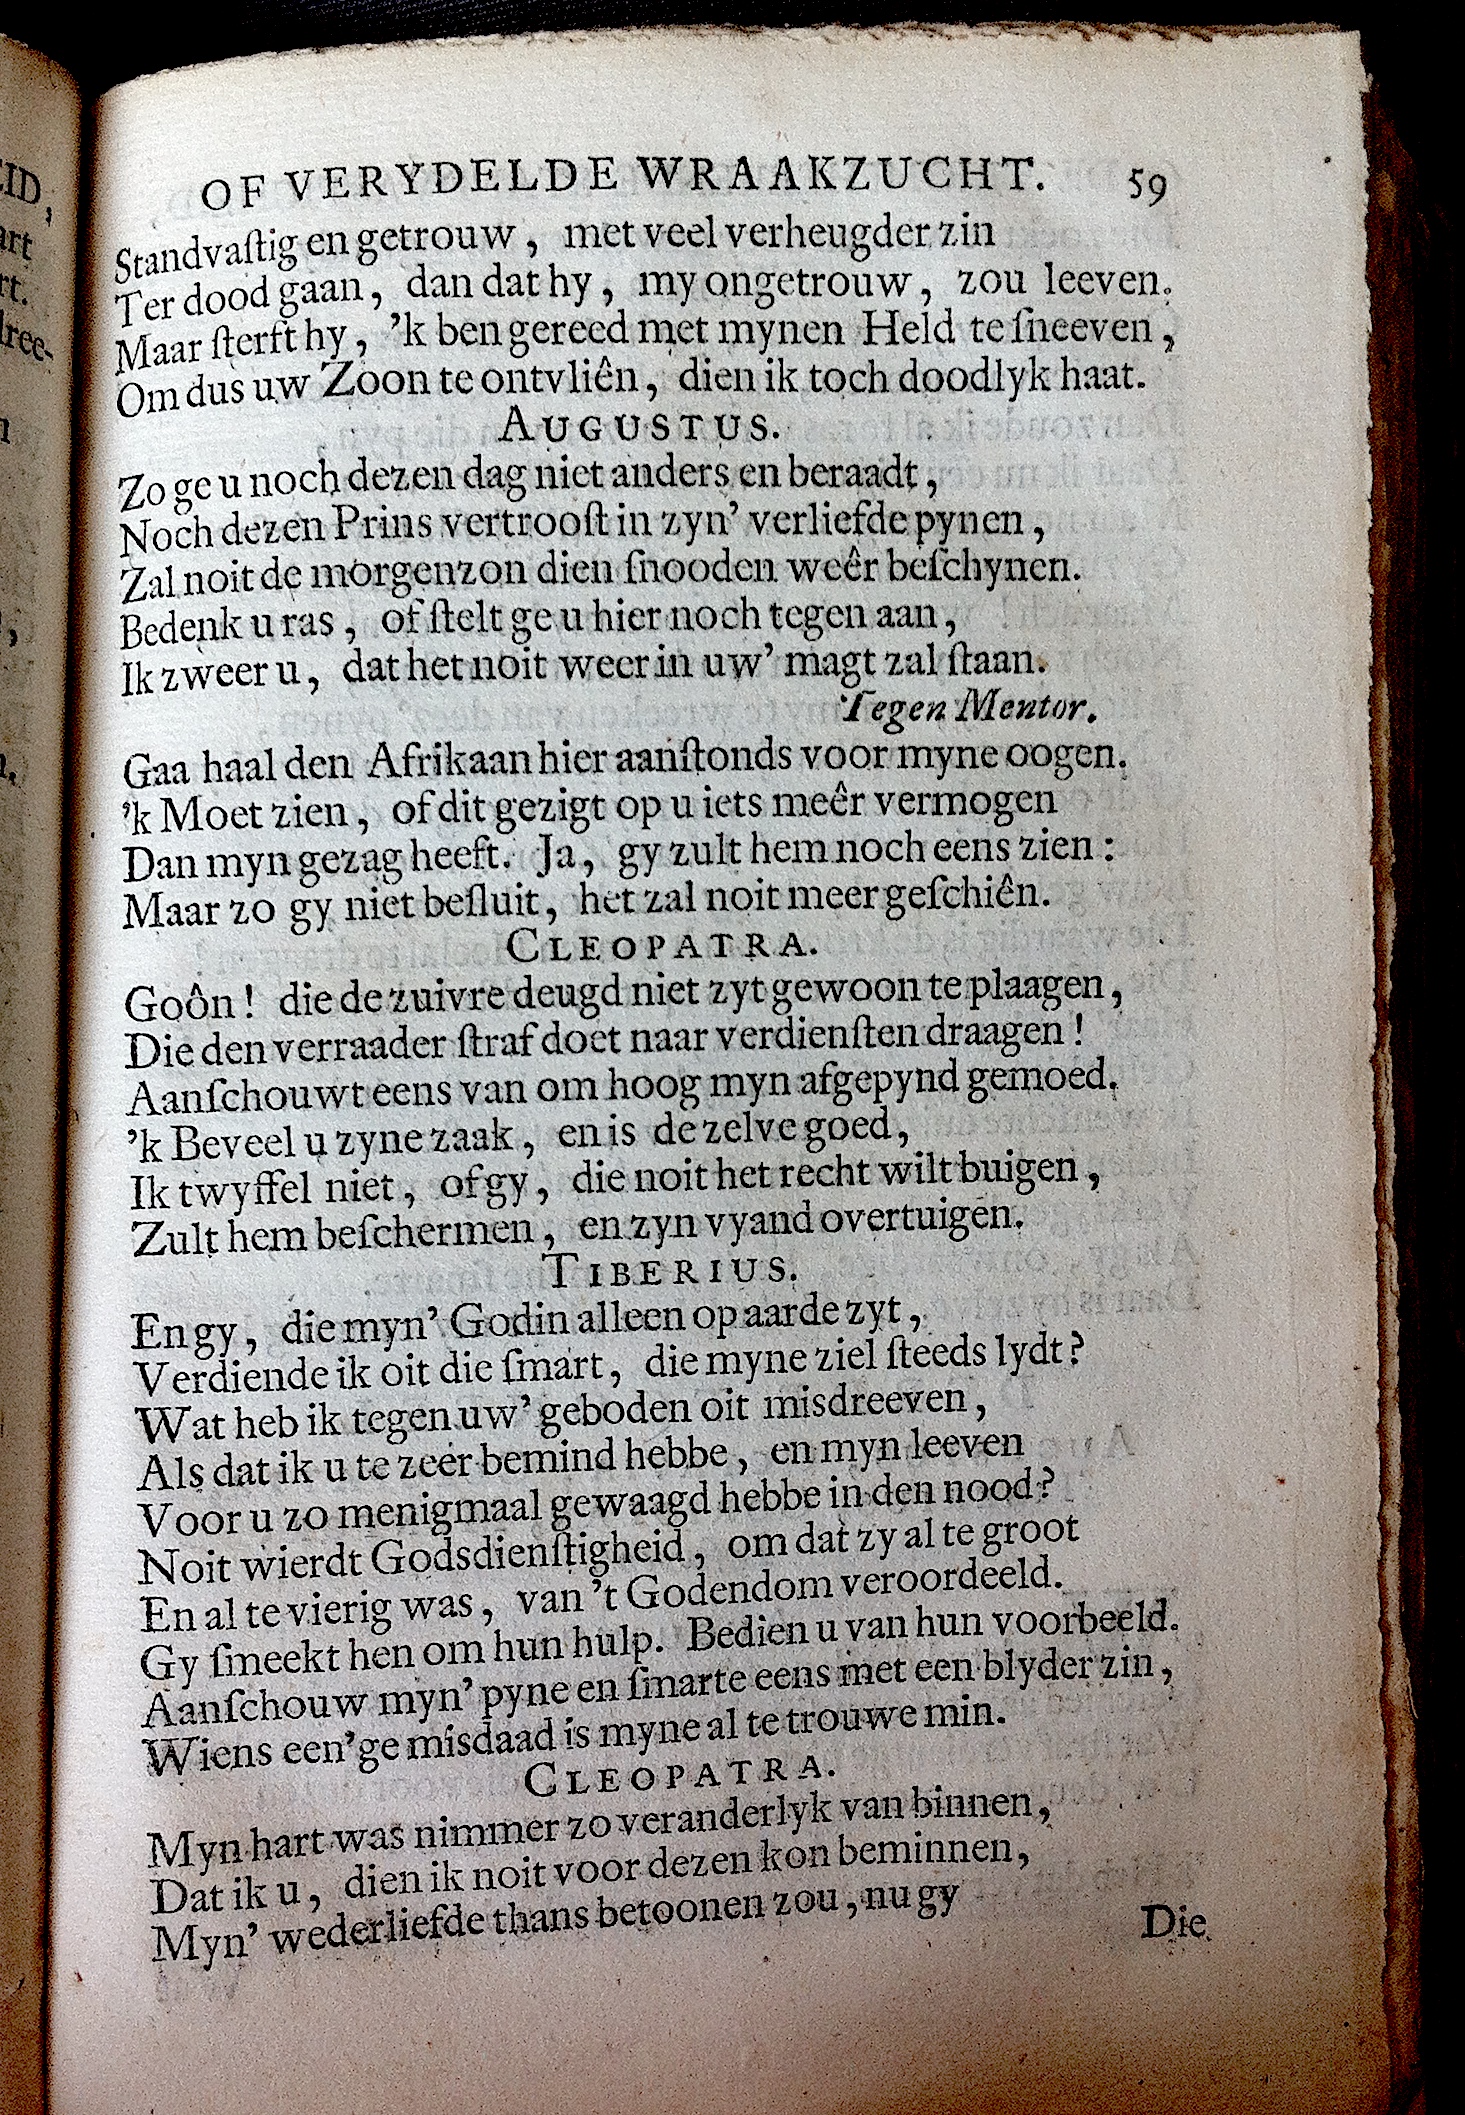 OF VERYDELDE WRAAKZUCHT. 59
Standvaſtig en getrouw, met veel verheugder zin
Ter dood gaan, dan dat hy, my ongetrouw, zou leeven.
Maar ſterft hy, 'k ben gereed met mynen Held te ſneeven,
Om dus uw Zoon te ontvliên, dien ik toch doodlyk haat.
AUGUSTUS.
Zo ge u noch dezen dag niet anders en beraadt,
Noch dezen Prins vertrooſt in zyn' verliefde pynen,
Zal noit de morgenzon dien ſnooden weêr beſchynen.
Bedenk u ras, of ſtelt ge u hier noch tegen aan,
Ik zweer u, dat het noit weer in uw' magt zal ſtaan.
Tegen Mentor.
Gaa haal den Afrikaan hier aanſtonds voor myne oogen.
'k Moet zien, of dit gezigt op u iets meêr vermogen
Dan myn gezag heeft. Ja, gy zult hem noch eens zien:
Maar zo gy niet beſluit, het zal noit meer geſchiên.
CLEOPATRA.
Goôn! die de zuivre deugd niet zyt gewoon te plaagen,
Die den verraader ſtraf doet naar verdienſten draagen!
Aanſchouwt eens van om hoog myn afgepynd gemoed.
'k Beveel u zyne zaak, en is de zelve goed,
Ik twyffel niet, of gy, die noit het recht wilt buigen,
Zult hem beſchermen, en zyn vyand overtuigen.
TIBERIUS.
En gy, die myn' Godin alleen op aarde zyt,
Verdiende ik oit die ſmart, die myne ziel ſteeds lydt?
Wat heb ik tegen uw' geboden oit misdreeven,
Als dat ik u te zeer bemind hebbe, en myn leeven
Voor u zo menigmaal gewaagd hebbe in den nood?
Noit wierdt Godsdienſtigheid, om dat zy al te groot
En al te vierig was, van 't Godendom veroordeeld.
Gy ſmeekt hen om hun hulp. Bedien u van hun voorbeeld.
Aanſchouw myn' pyne en ſmarte eens met een blyder zin,
Wiens een'ge misdaad is myne al te trouwe min.
CLEOPATRA.
Myn hart was nimmer zo veranderlyk van binnen,
Dat ik u, dien ik noit voor dezen kon beminnen,
Myn' wederliefde thans betoonen zou, nu gy
Die